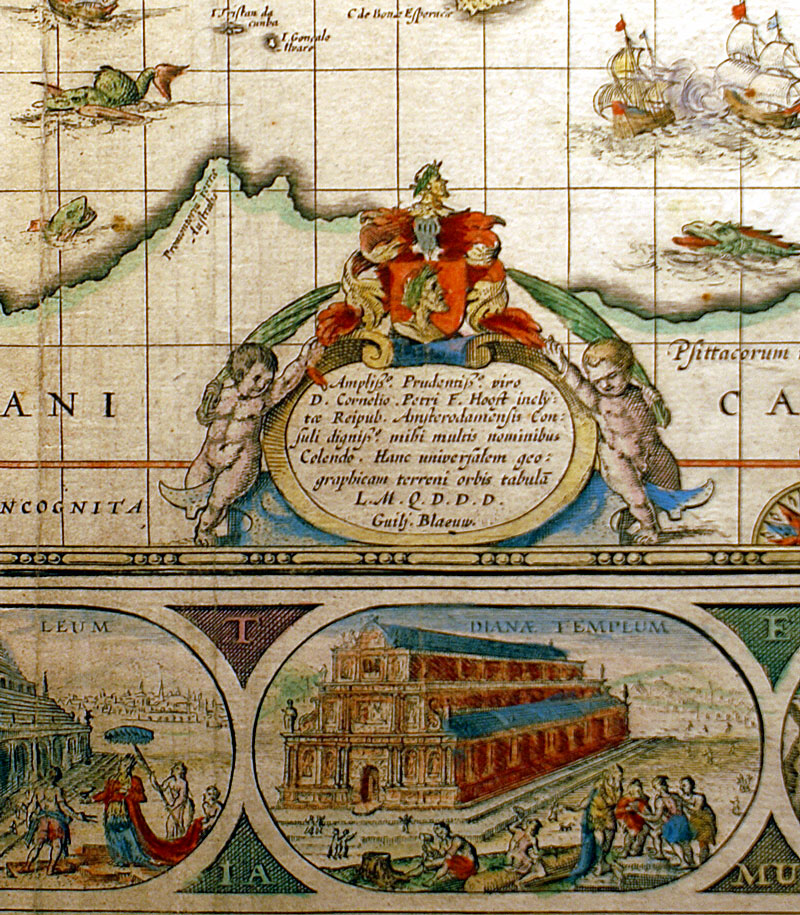 I. Tristan da
cunha
I. Gonçalo
Alvare
C de Bona Esperance
Promontorium terræ
Australis
Psittacorum
Ampliſsº. Prudentiſsº. viro
D. Cornelio. Petri F. Hooft incly-
tæ Reipub. Amsterodamensis Con-
ſuli digniſsº. mihi multis nominibus
Colendo. Hanc univerſalem geo-
graphicam terreni orbis tabulā
L. M. Q. D. D. D.
Guilj. Blaeuw.
ANI
CA
NCOGNITA
LEUM
T
DIANÆ TEMPLUM
E
IA
MU